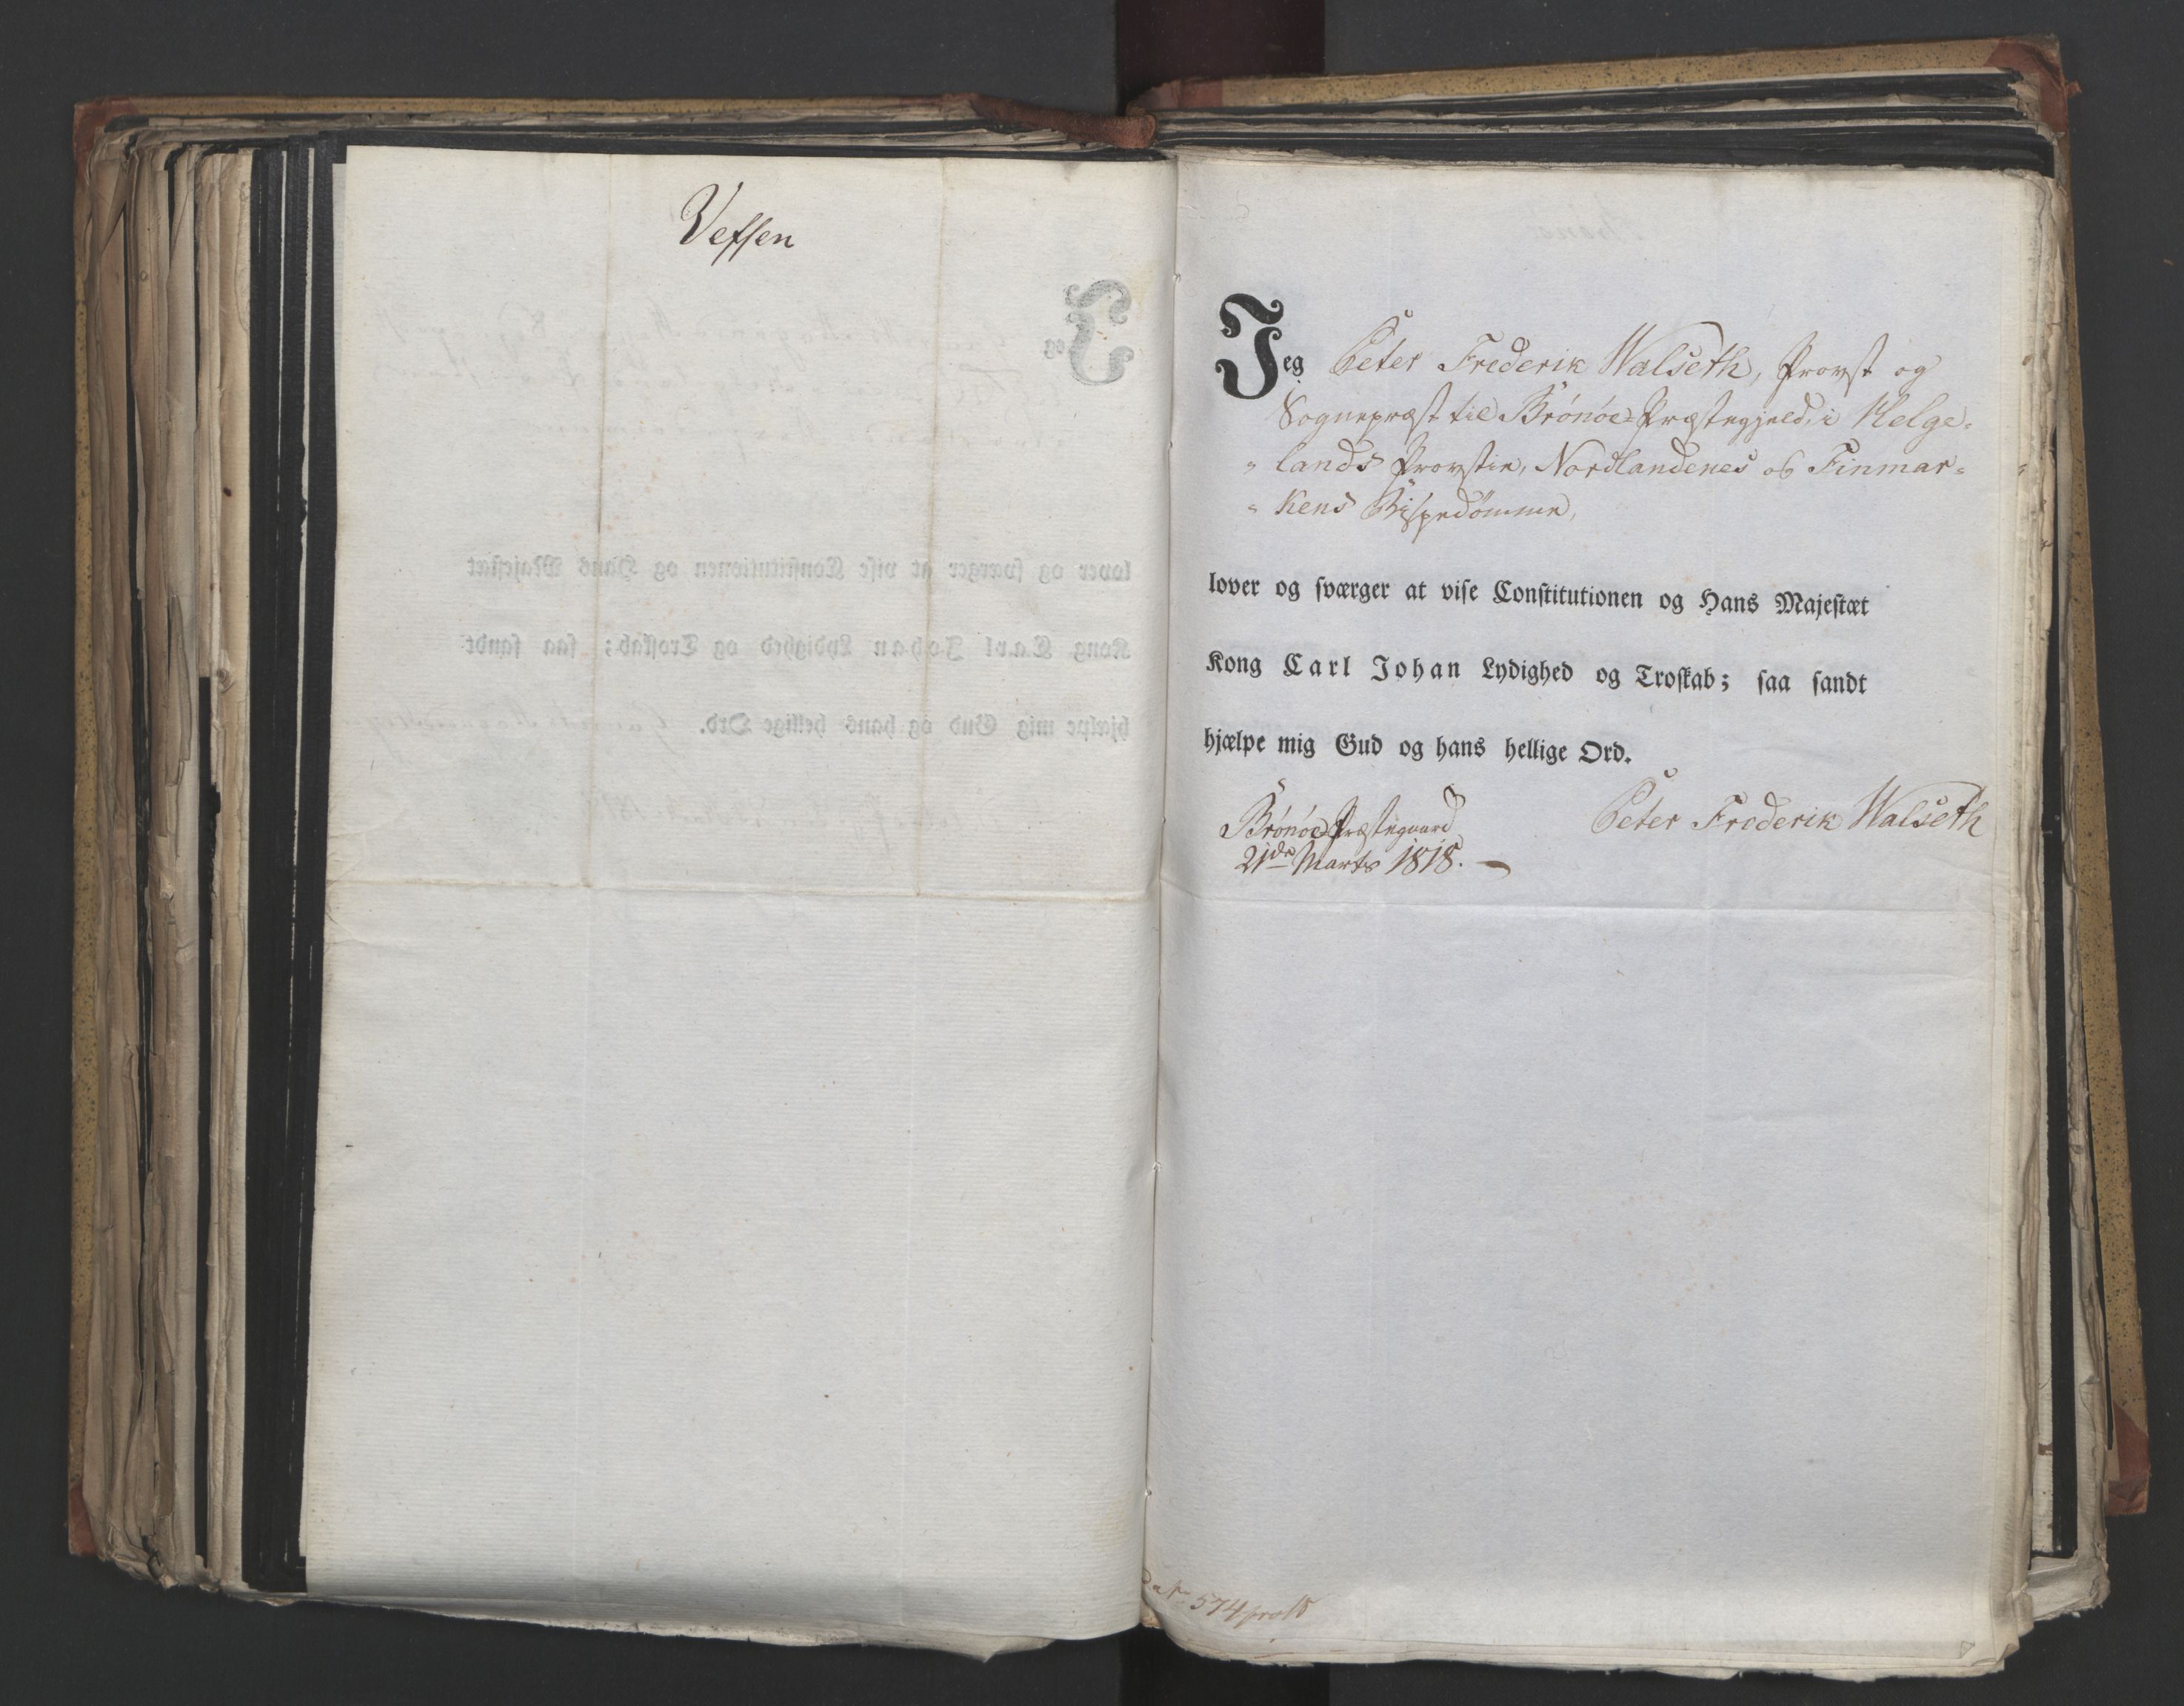 Vefsen
Jeg Peter Frederik Walseth, Provst og
Sognepræst til Brönöe-Præstegjeld, i Helge-
lands Provstie, Nordlandenes og Finmar-
kens Bispedömme,
lover og sværger at vise Constitutionen og Hans Majestæt
Kong Carl Johan Lydighed og Troskab; saa sandt
hjælpe mig Gud og hans hellige Ord.
Brönöe Præstegaard
21de Marts 1818. —
Peter Frederik Walseth
574